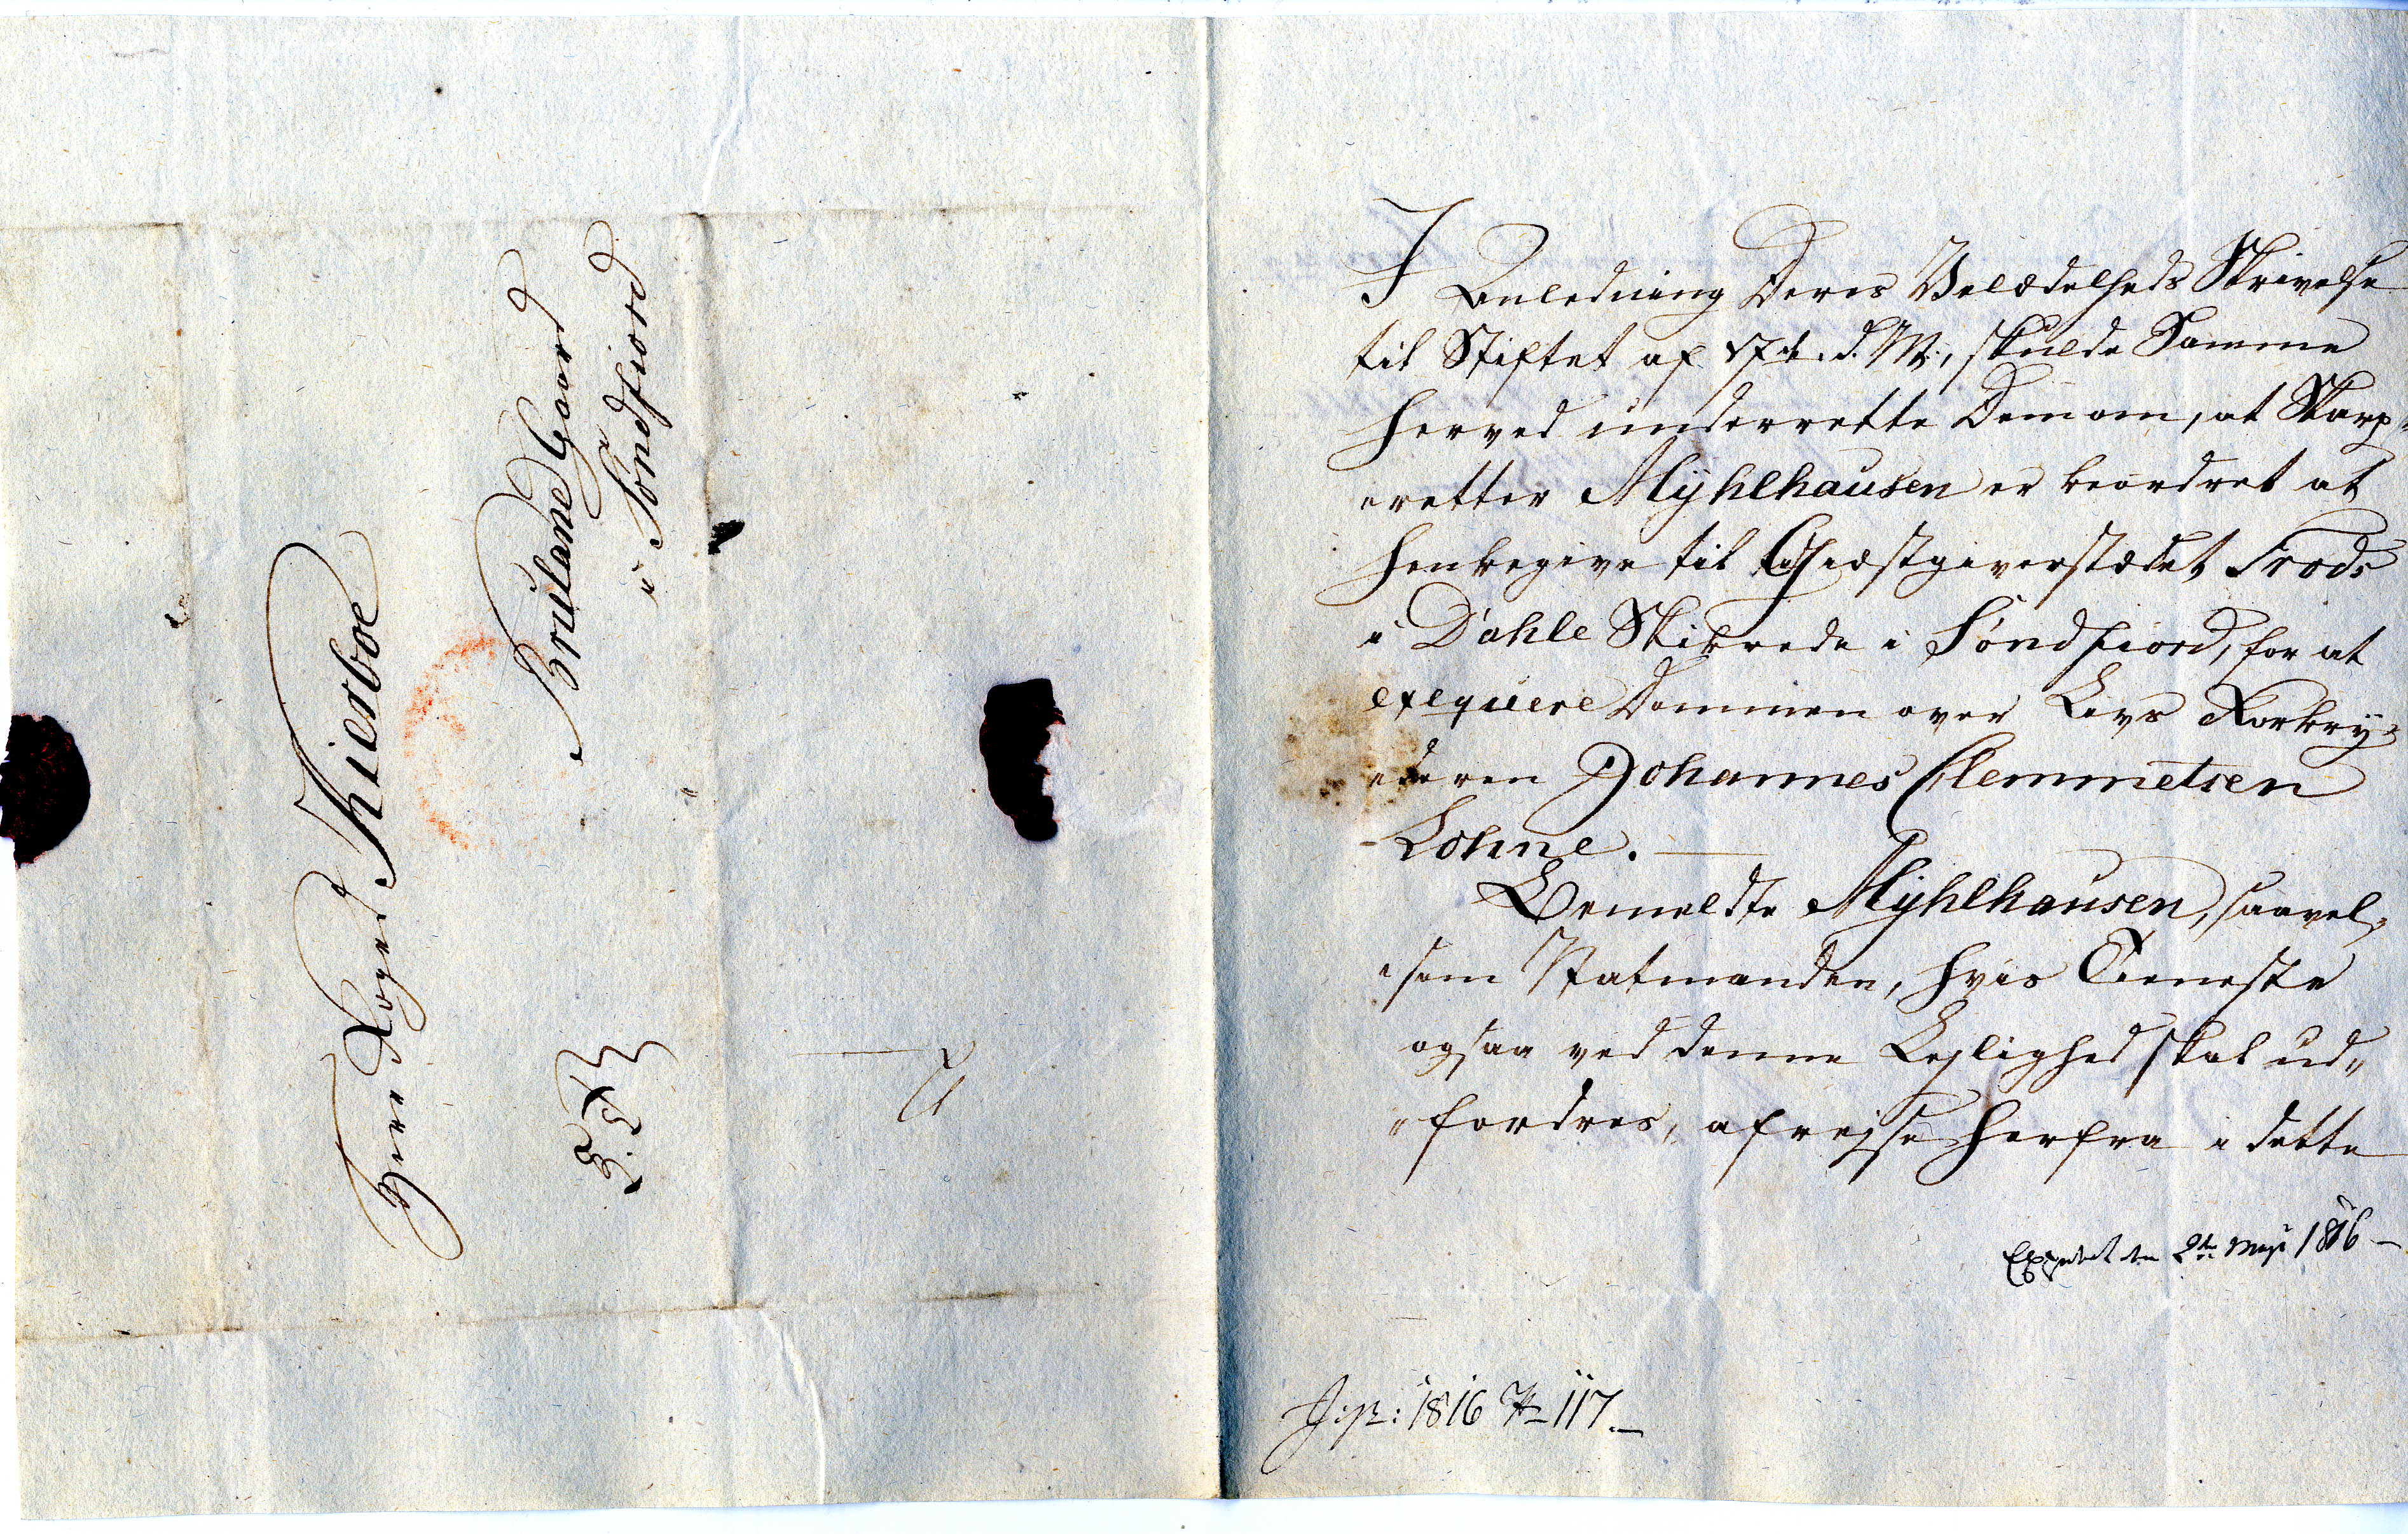 Herr Foged Kierboe
Bruland Gaard
i Søndfiord
I Anledning Deres Velædelheds Skrivelse
til Stiftet af 17de d. M., skulde Samme
herved underrette Dem om, at Skarp„
„retter Myhlhausen er beordret at
henbegive til Giæstgiverstædet
i Dahle Skibrede i Søndfiord, for at
exequere Dommen over Livs Forbry„
„deren Johannes Clemmetsen
Lohne. —
Bemeldte Myhlhausen, saavel„
„som Natmanden, hvis Tieneste
ogsaa ved denne Lejlighed skal ud„
„fordres, afrejse herfra i dette
Expedert den 2de Maji 1816 —
1816 No 117. —